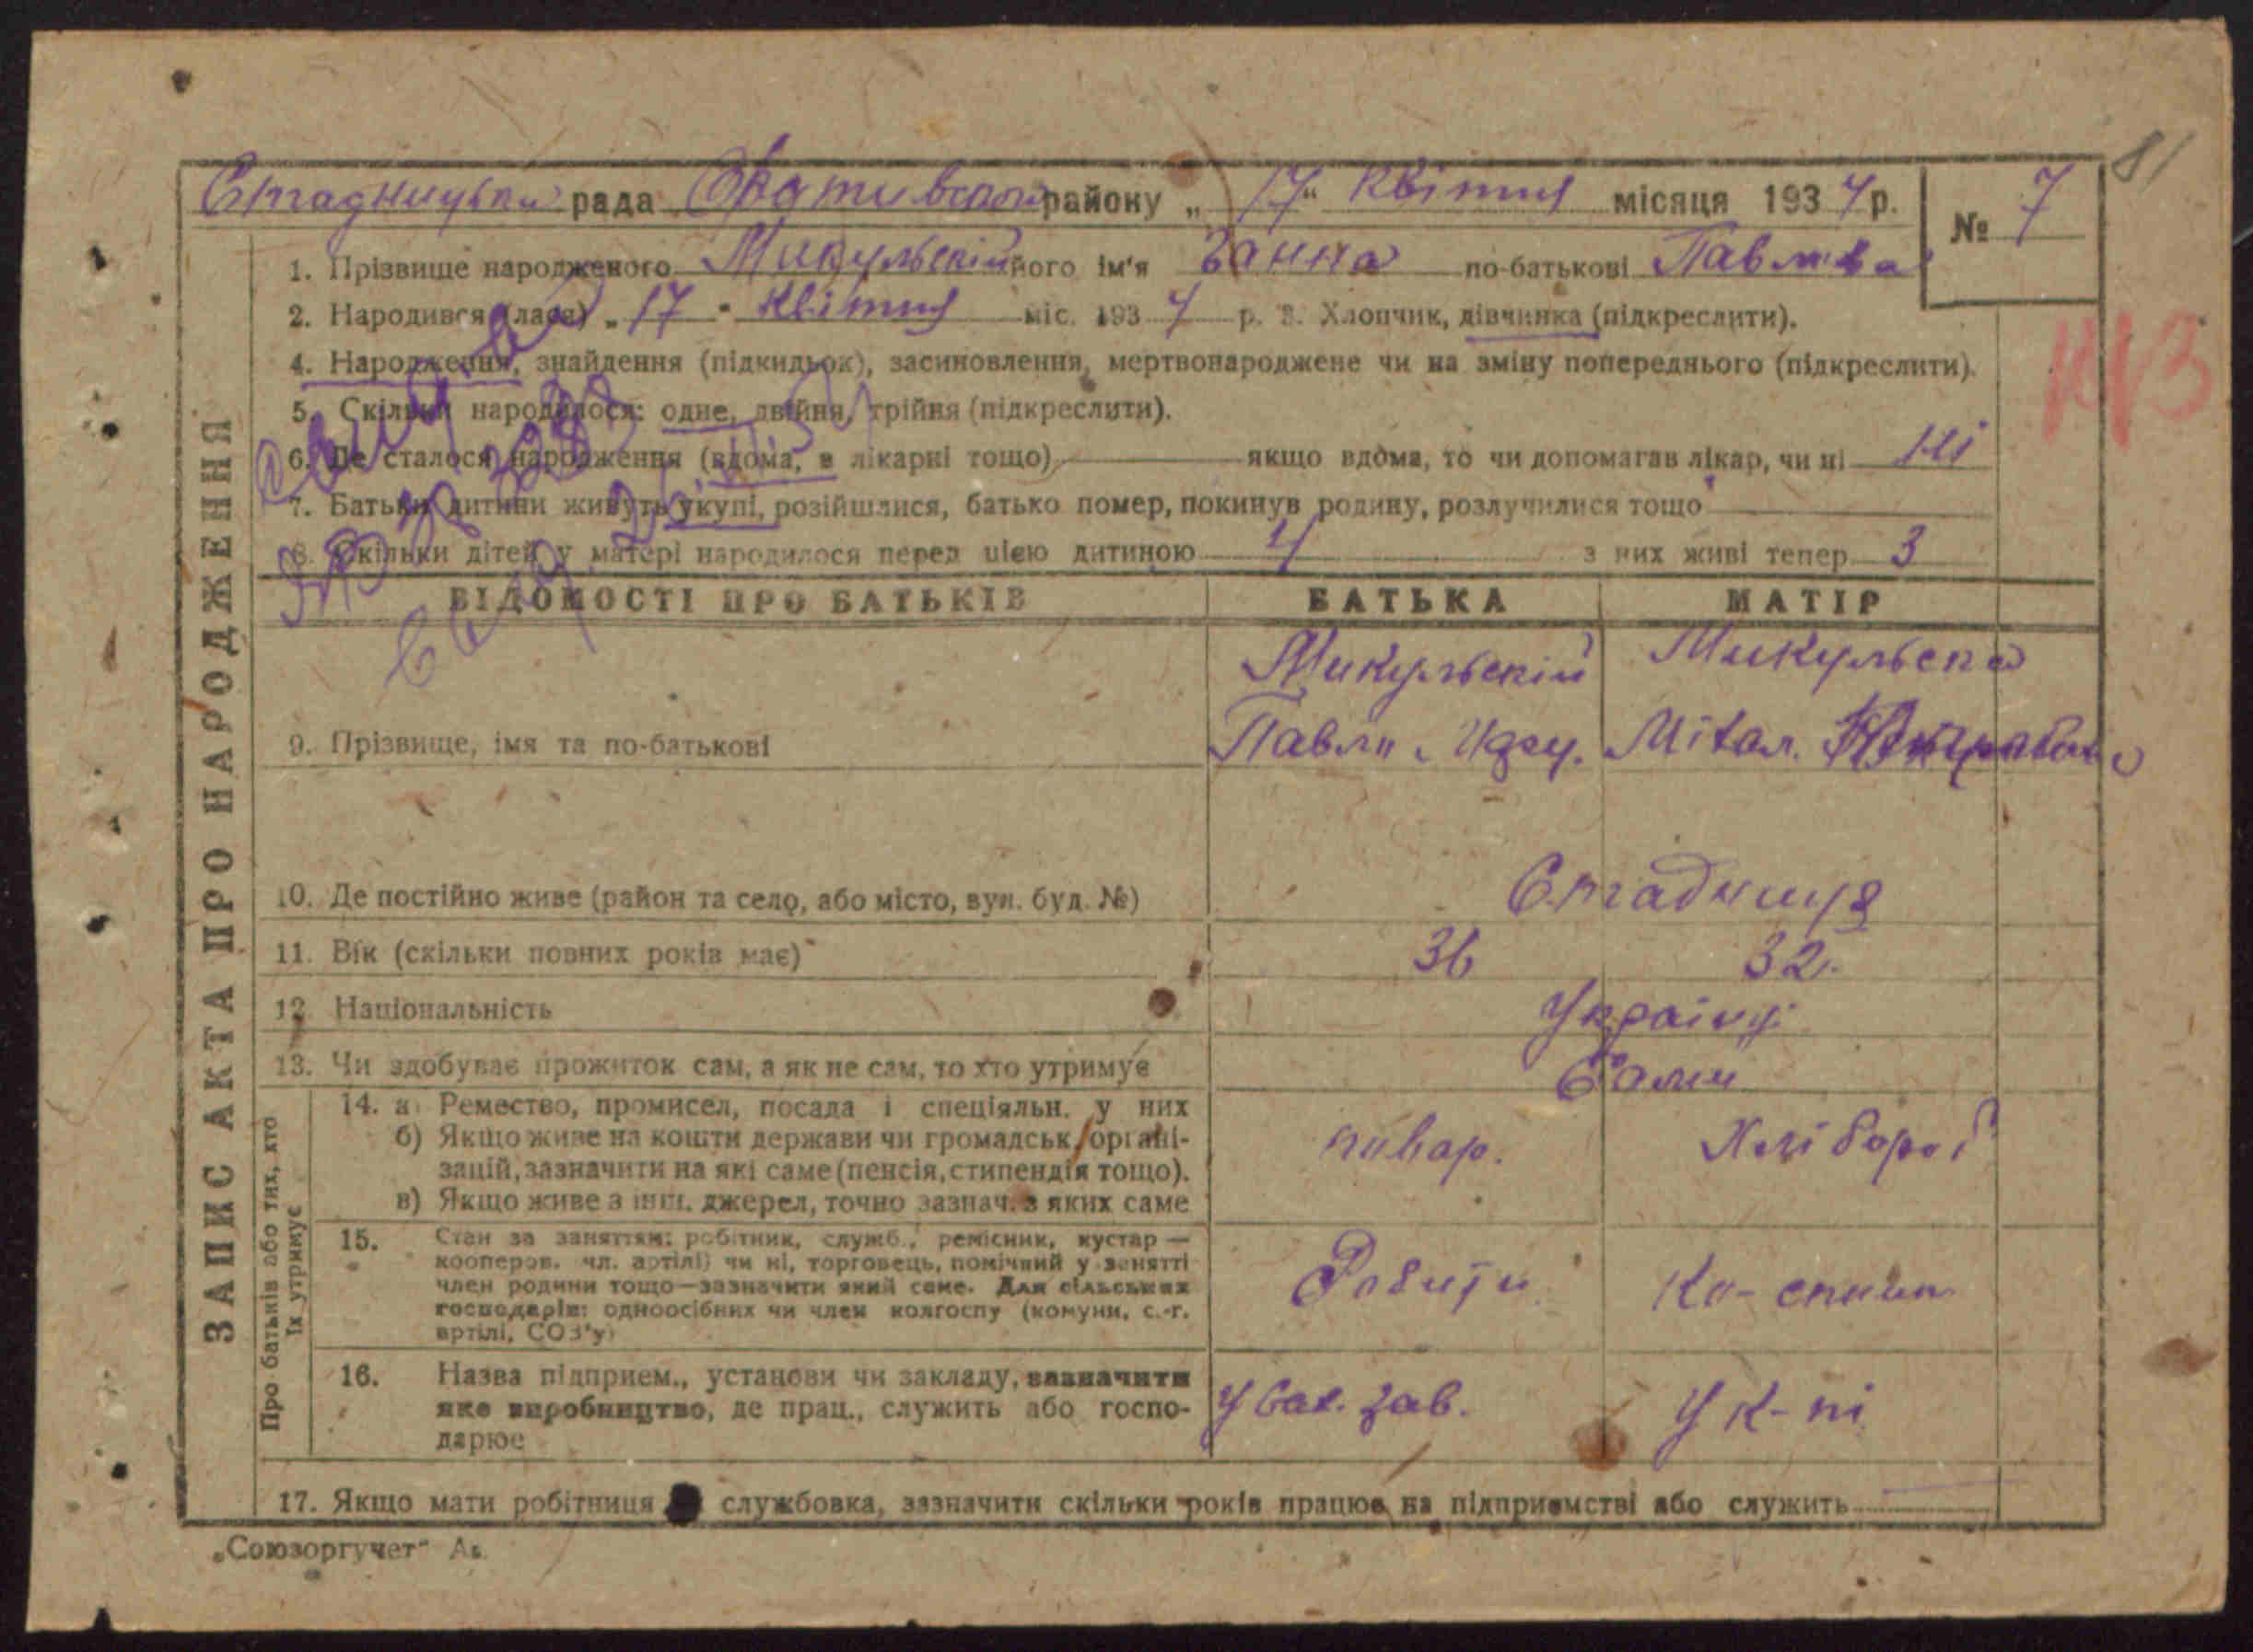 81
Стадницька рада Оративського району „17“ квітня місяця 1934 р.
№ 7
1. Прізвище народженого Микульский його ім'я Ганна по-батькові Павлівна
2. Народився (лась) „17“ квітня міс. 1934 р. 3. Хлопчик, дівчинка (підкреслити).
143
4. Народження, знайдення (підкидьок), засиновлення, мертвонароджене чи на зміну попереднього (підкреслити).
5. Скільки народилося: одне, двійня, трійня (підкреслити).
6. Де сталося народження (вдома, в лікарні тощо) якщо вдома, то чи допомагав лікар, чи ні ні
7. Батьки дитини живуть укупі, розійшлися, батько помер, покинув родину, розлучилися тощо
8. Скільки дітей у матері народилося перед цією дитиною 4 з них живі тепер 3
ЗАПИС АКТА ПРО НАРОДЖЕННЯ
ВІДОМОСТІ ПРО БАТЬКІВ БАТЬКА МАТІР
Микульскій Микульска
9. Прізвище, імя та по-батькові Павло
10. Де постійно живе (район та село, або місто, вул. буд. №) Стадниця
11. Вік (скільки повних років має) 36 32
12. Національність Українці
13. Чи здобуває прожиток сам, а як не сам, то хто утримує Сами
Про батьків або тих, хто їх утримує
14. а) Ремество, промисел, посада і спеціяльн. у них
б) Якщо живе на кошти держави чи громадськ. організацій, зазначити на які саме (пенсія, стипендія тощо).
в) Якщо живе з інш. джерел, точно зазнач. з яких саме
Хлібороб
15. Стан за заняттям: робітник, служб., ремісник, кустар —
кооперов. чл. артілі) чи ні, торговець, помічний у занятті
член родини тощо—зазначити який саме. Для сільських
господарів: одноосібних чи член колгоспу (комуни, с.-г.
артілі, СОЗ'у)
16. Назва підприєм., установи чи закладу, зазначити
яке виробництво, де прац., служить або господарює
У сах. зав. У к-пі
17. Якщо мати робітниця службовка, зазначити скільки років працює на підприємстві або служить
„Союзоргучет“